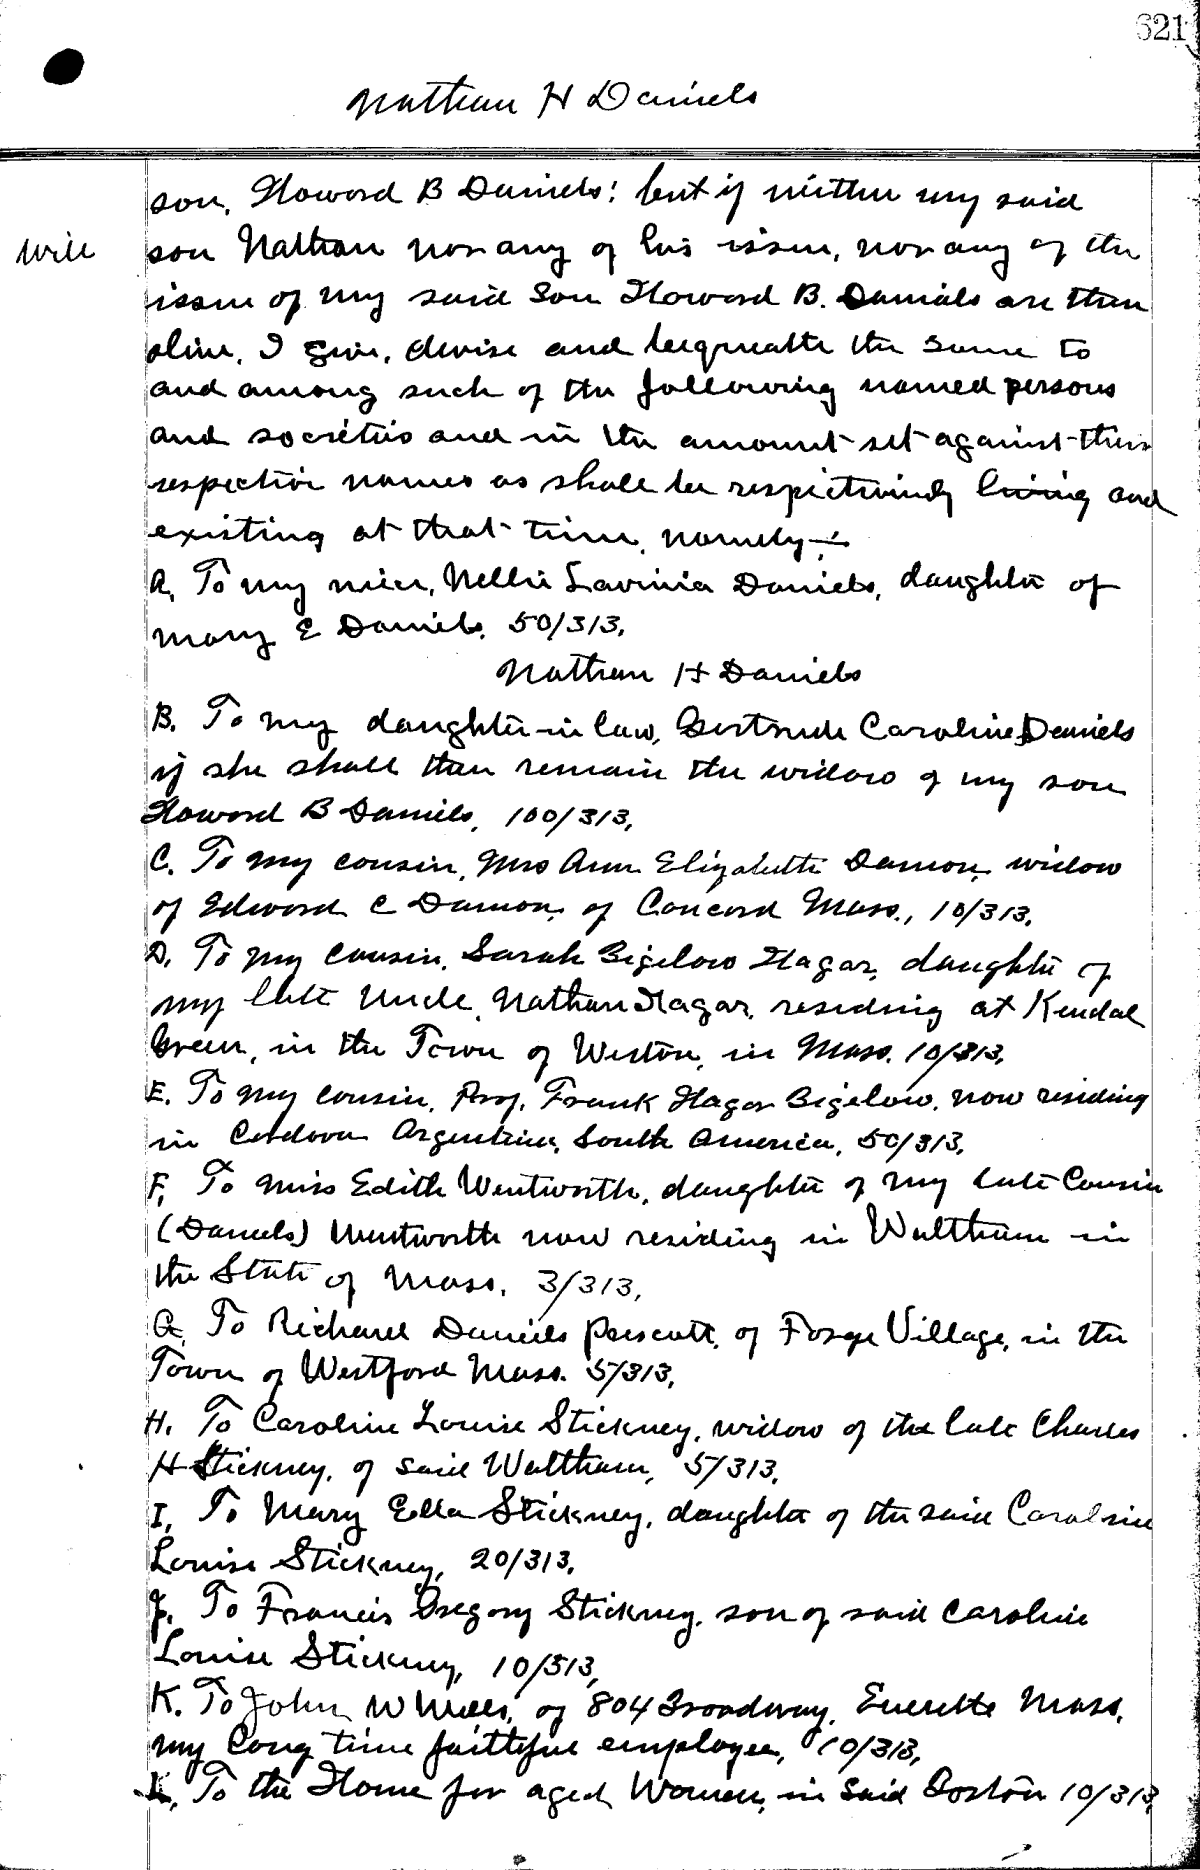 621
Nathan H Daniels
Will
son, Howard B Daniels; but if neither my said
son Nathan nor any of his issue, nor any of the
issue of my said Son Howard B. Daniels are then
alive, I give, devise and bequeathe the same to
and among such of the following named persons
and societies and in the amount set against their
respective names as shall be respectively living and
existing at that time, namely:-
A, To my niece, Nellie Lavinia Daniels, daughter of
Mary E Daniels, 50/313,
Nathan H Daniels
B. To my daughter-in law, Gertrude Caroline Daniels
if she shall then remain the widow of my son
Howard B Daniels, 100/313,
C. To my cousin, Mrs Ann Elizabeth Damon, widow
of Edward C Damon, of Concord Mass., 10/313,
D, To my Cousin, Sarah Bigelow Hagar, daughter of
my late Uncle, Nathan Hagar, residing at Kendal
Green, in the Town of Weston, in Mass. 10/313,
E. To my cousin, Prof. Frank Hagar Bigelow, now residing
in Cordova Argentina, South America, 50/313,
F, To Miss Edith Wentworth, daughter of my late Cousin
(Daniels) Wentworth now residing in Waltham in
the State of Mass, 3/313,
G, To Richard Daniels Prescott, of Forge Village, in the
Town of Westford Mass. 5/313,
H. To Caroline Louise Stickney, widow of the late Charles
H Stickney, of said Waltham, 5/313,
I, To Mary Ella Stickney, daughter of the said Caroline
Louise Stickney, 20/313,
J. To Francis Gregory Stickney, son of said Caroline
Louise Stickney, 10/313,
K. To John W Mills, of 804 Broadway, Everette Mass,
my long time faithful employee, 10/313,
L, To the Home for aged Women, in said Boston 10/313,